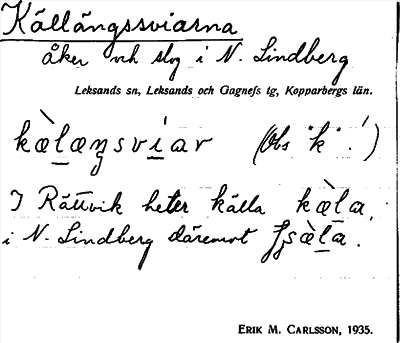 Källängssviarna
åker och slog i N. Lindberg
Leksands sn, Leksands och Gagnefs tg, Kopparbergs län.
kæ̀l̲æŋsvi̲ar (Obs "k".!)
I Rättvik heter källa kæ̀l̲a,
i N. Lindberg däremot
ERIK M. CARLSSON, 1935.